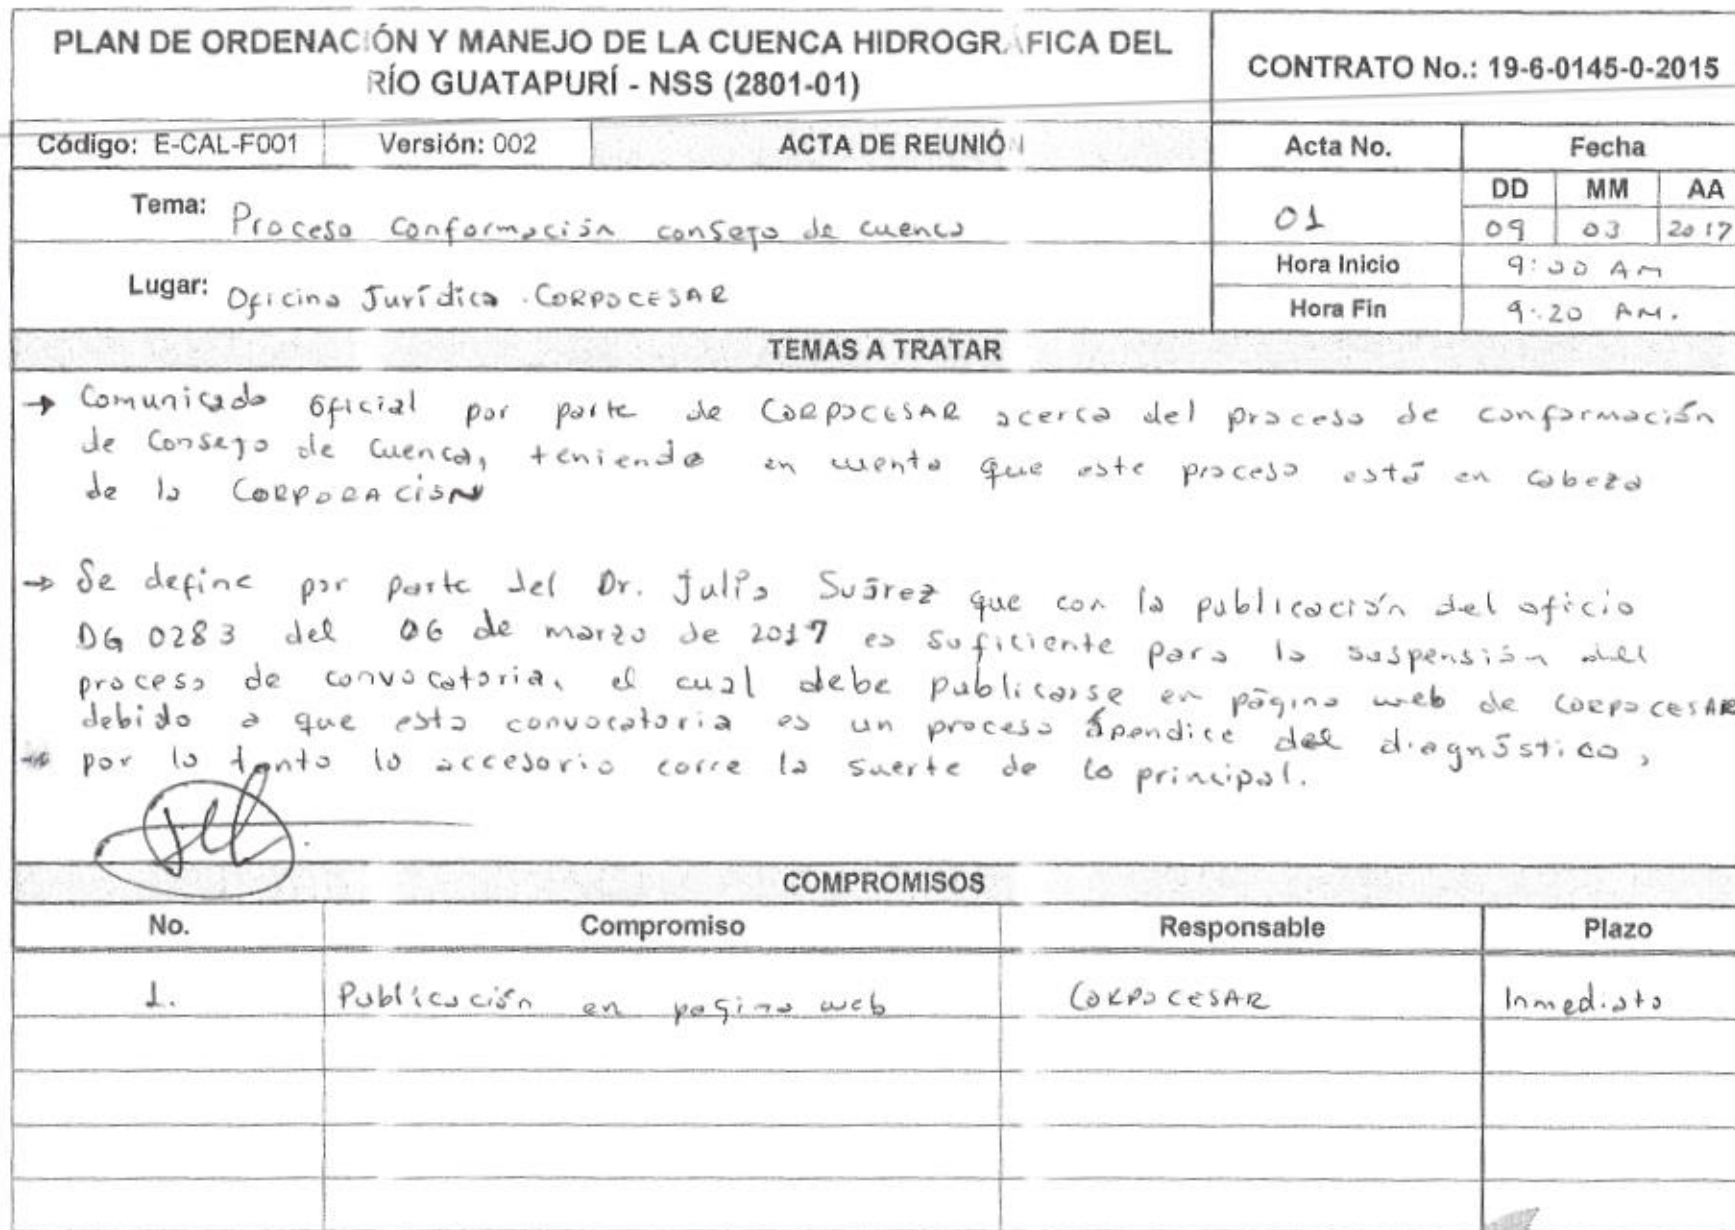 PLAN DE ORDENACIÓN Y MANEJO DE LA CUENCA HIDROGRÁFICA DEL
RÍO GUATAPURÍ - NSS (2801-01)
CONTRATO No.: 19-6-0145-0-2015
Código: E-CAL-F001 Versión: 002 ACTA DE REUNIÓN Acta No. Fecha
DD MM AA
Tema: Proceso Conformación consejo de cuenca 01 09 03 2017
Hora Inicio 9:00 AM
Lugar: Oficina Jurídica . CORPOCESAR
Hora Fin 9:20 AM.
TEMAS A TRATAR
→ Comunicado oficial por parte de CORPOCESAR acerca del proceso de conformación
de Consejo de Cuenca, teniendo en cuenta que este proceso está en cabeza
de la CORPORACIÓN
→ Se define por parte del Dr. Julio Suárez que con la publicación del oficio
DG 0283 del 06 de marzo de 2017 es suficiente para la suspensión del
proceso de convocatoria, el cual debe publicarse en página web de CORPOCESAR
debido a que esta convocatoria es un proceso ápendice del diagnóstico,
por lo tanto lo accesorio corre la suerte de lo principal.
COMPROMISOS
No. Compromiso Responsable Plazo
1. Publicación en pagina web CORPOCESAR Inmediato